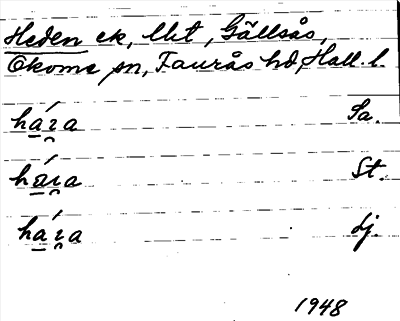 Heden ek, Mt, Gällsås,
Okome sn, Faurås hd, Hall. l.
háɪa Sa.
háɪa St.
háɪa Lj.
1948